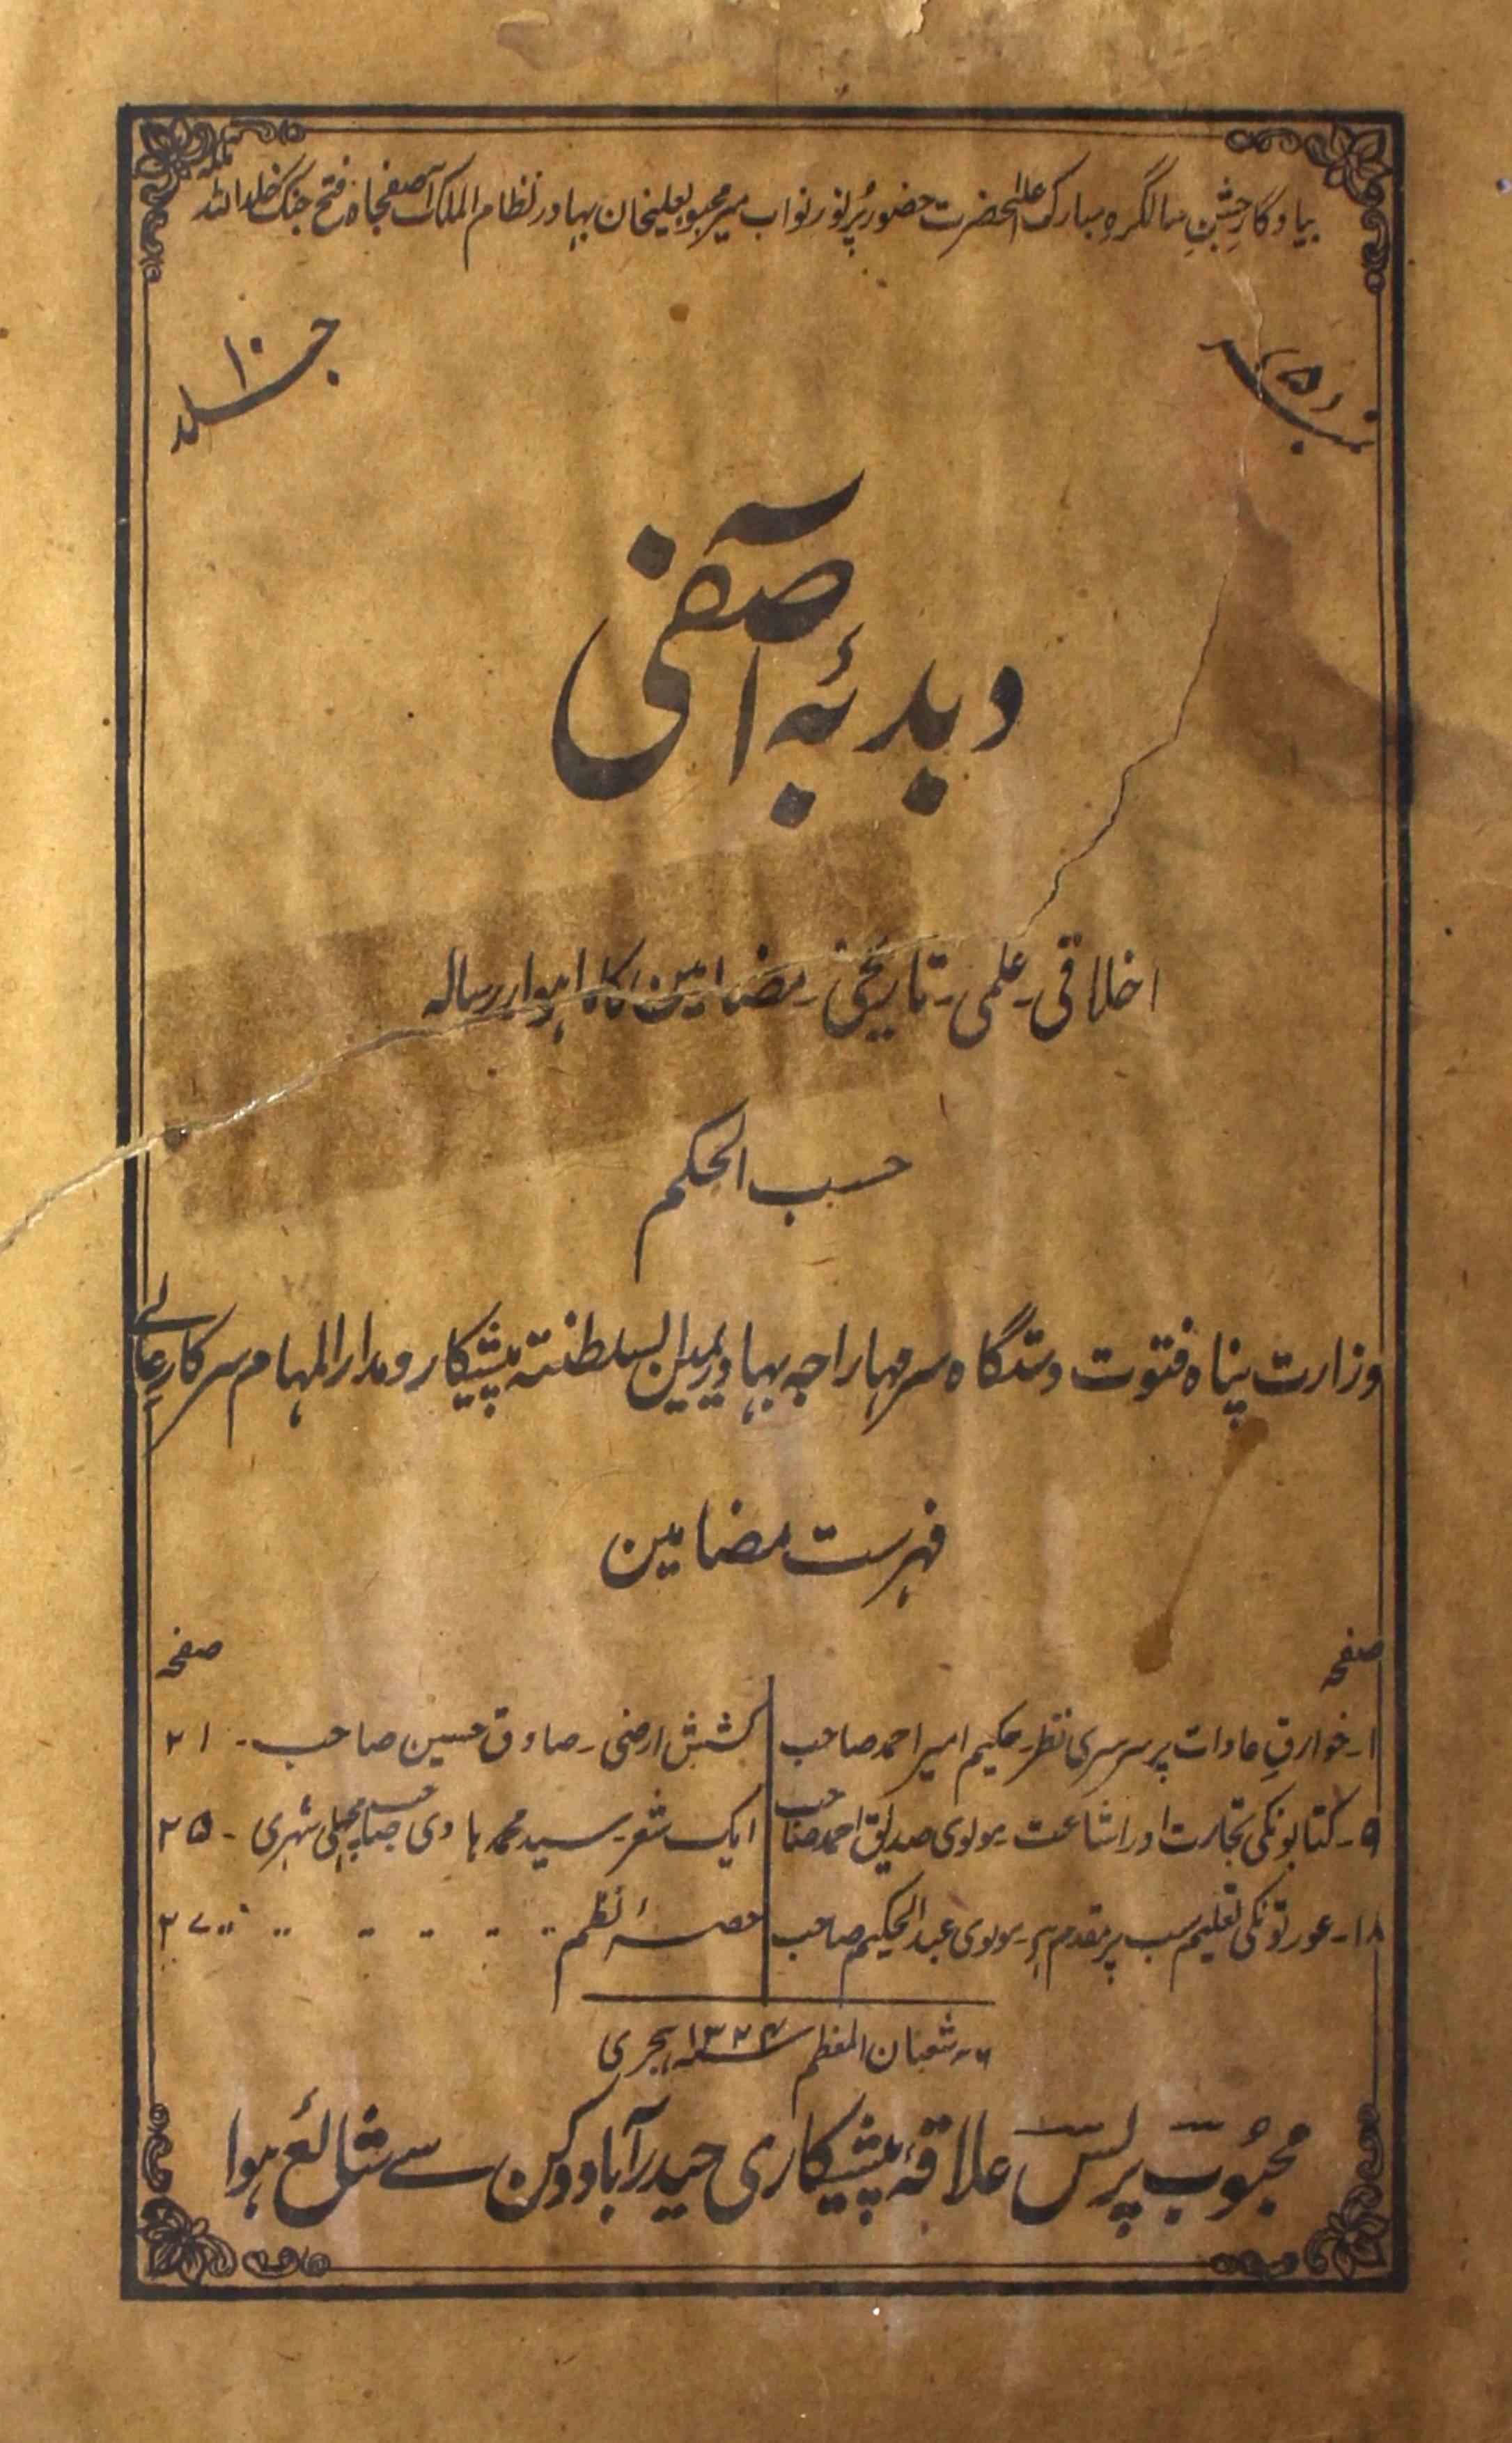 بیادگارِ جشنِ سالگرہِ مبارک اعلیٰحضرت حضور پُرنور نواب میر محبوبعلیخان بہادر نظام الملک آصفجاہ فتح جنگ خلد اللہ ملکہ
نمبر (۵)
جلد ۱۰
دبدبۂ آصفی
اخلاقی۔ علمی۔ تاریخی۔ مضامین کا ماہوار رسالہ
حسب الحکم
وزارت پناہ فتوت دستگاہ سر مہاراجہ بہادر یمین السلطنتہ پیشکار و مدار المہام سرکارِ عالے
فہرست مضامین
صفحہ
۱۔ خوارقِ عادات پر سرسری نظر۔ حکیم امیر احمد صاحب
۹۔ کتابونکی تجارت اور اشاعت۔ مولوی صدیق احمد صاحب
۱۸۔ عورتونکی تعلیم سب پر مقدم ہے۔ مولوی عبد الحکیم صاحب
صفحہ
کشش ارضی۔ صادق حسین صاحب۔ ۲۱
ایک شعر۔ سید محمد ہادی صاحب مچھلی شہری۔ ۲۵
حصۂ نظم .. .. .. .. .. ۲۷
شعبان المعظم ۱۳۲۴ ہجری
محبوب پریس علاقۂ پیشکاری حیدرآباد دکن سے شائع ہوا